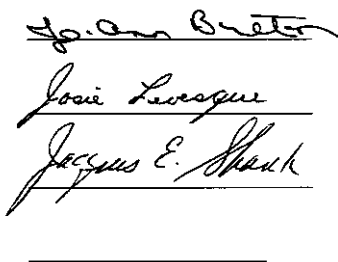 Jo-Ann Burton
Josie Levesque
Jacques E. Shank